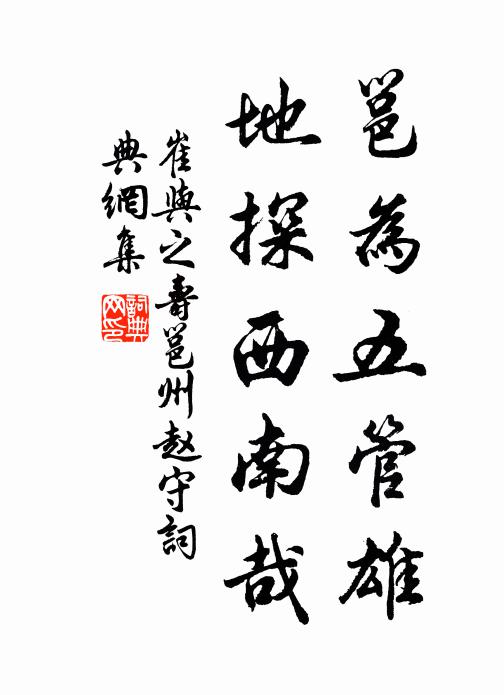 邕為五管雄
地探西南哉
崔與之壽邕州赵守詞
典網集
詞典网印